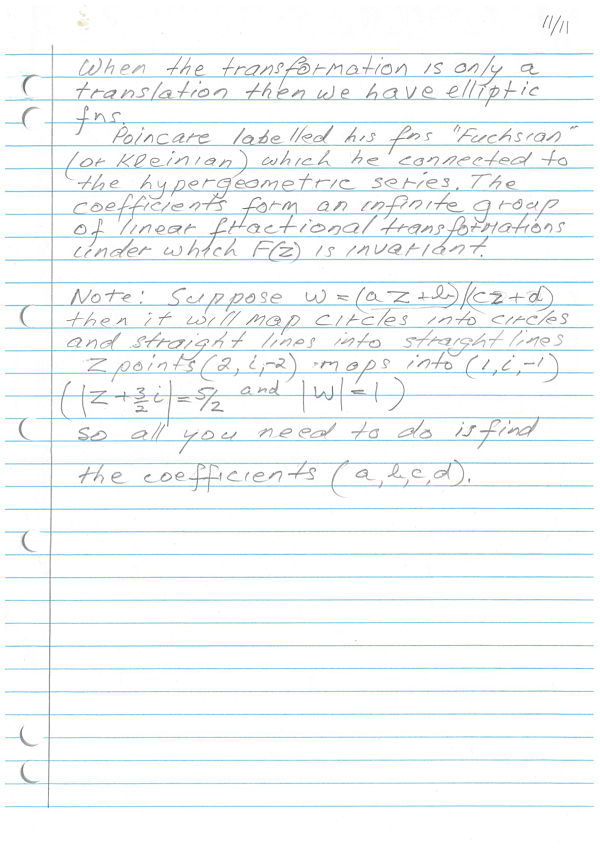 11/11
When the transformation is only a
translation then we have elliptic
fns.
Poincare labelled his fns "Fuchsian"
(or Kleinian) which he connected to
the hypergeometric series. The
coefficients form an infinite group
of linear fractional transformations
under which F(z) is invariant.
Note: Suppose w = (az+b)/(cz+d)
then it will map circles into circles
and straight lines into straight lines
Z points (2, i, -2) maps into (1, i, -1)
(|Z + 3/2 i| = 5/2 and |W| = 1)
so all you need to do is find
the coefficients (a, b, c, d).